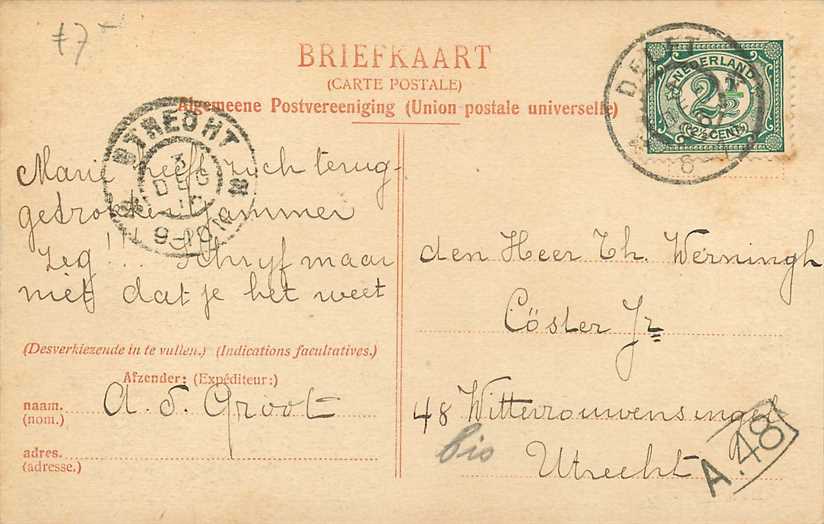 £7-
BRIEFKAART
(CARTE POSTALE)
Algemeene Postvereeniging (Union postale universelle)
DELFT
NEDERLAND
2½
(2½ CENT)
6
UTRECHT
3
DEC
9-10N
Marie heeft zich terug-
getrokken Jammer
zeg!!! Schryf maar
niet dat je het weet
den Heer Th. Werningh
Cöster Jr
48 Wittevrouwensingel
bis
Utrecht
A.48
(Desverkiezende in te vullen.) (Indications facultatives.)
Afzender: (Expéditeur:)
naam. A. d. Groot
(nom.)
adres.
(adresse.)